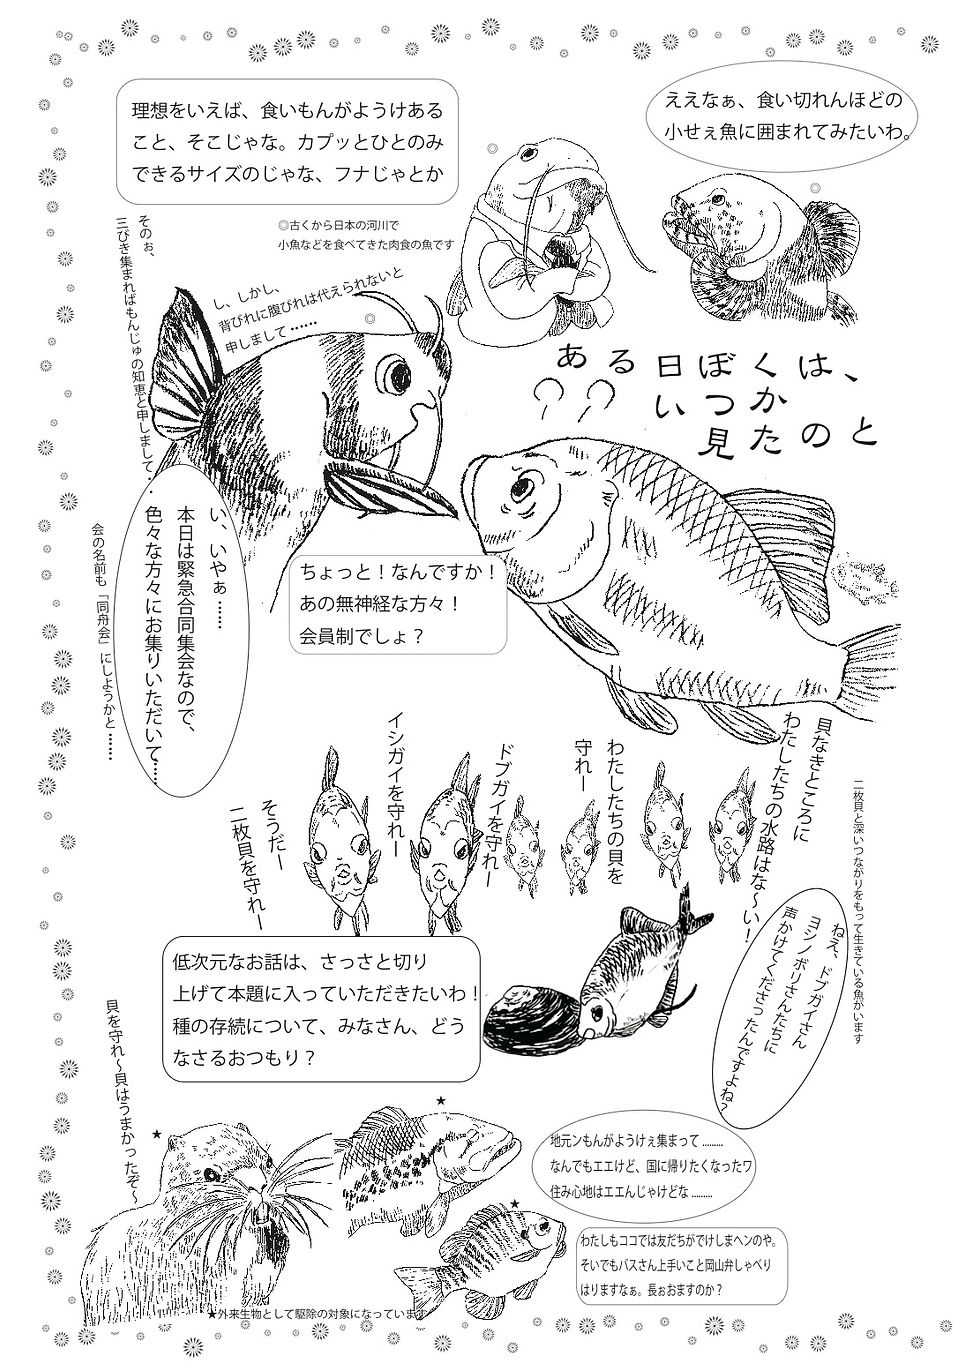 理想をいえば、食いもんがようけある
こと、そこじゃな。カプッとひとのみ
できるサイズのじゃな、フナじゃとか
ええなぁ、食い切れんほどの
小せぇ魚に囲まれてみたいわ。
◎
◎
◎古くから日本の河川で
小魚などを食べてきた肉食の魚です
そのぉ、
三びき集まればもんじゅの知恵と申しまして‥
し、しかし、
背びれに腹びれは代えられないと
申しまして……
◎
ある日ぼくは、
いつか
見たのと
い、いやぁ……
本日は緊急合同集会なので、
色々な方々にお集りいただいて……
会の名前も「同舟会」にしようかと……
ちょっと！なんですか！
あの無神経な方々！
会員制でしょ？
貝なきところに
わたしたちの水路はな～い！
わたしたちの貝を
守れー
ドブガイを守れー
イシガイを守れー
そうだー
二枚貝を守れー
二枚貝と深いつながりをもって生きている魚がいます
ねえ、ドブガイさん
ヨシノボリさんたちに
声かけてくださったんですよね？
低次元なお話は、さっさと切り
上げて本題に入っていただきたいわ！
種の存続について、みなさん、どう
なさるおつもり？
貝を守れ～貝はうまかったぞ～
★
★
★
地元ンもんがようけぇ集まって………
なんでもエエけど、国に帰りたくなったワ
住み心地はエエんじゃけどな………
わたしもココでは友だちがでけしまヘンのや。
そいでもバスさん上手いこと岡山弁しゃべり
はりますなぁ。長ぉおますのか？
★外来生物として駆除の対象になっています